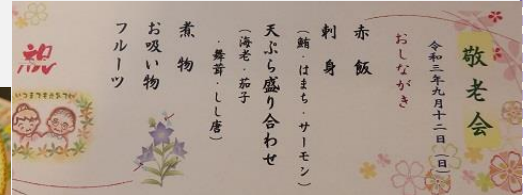 敬老会
令和三年九月十二日（日）
おしながき
赤飯
刺身
（鮪・はまち・サーモン）
天ぷら盛り合わせ
（海老・茄子
・舞茸・しし唐）
煮物
お吸い物
フルーツ
祝
いつまでも元気でね